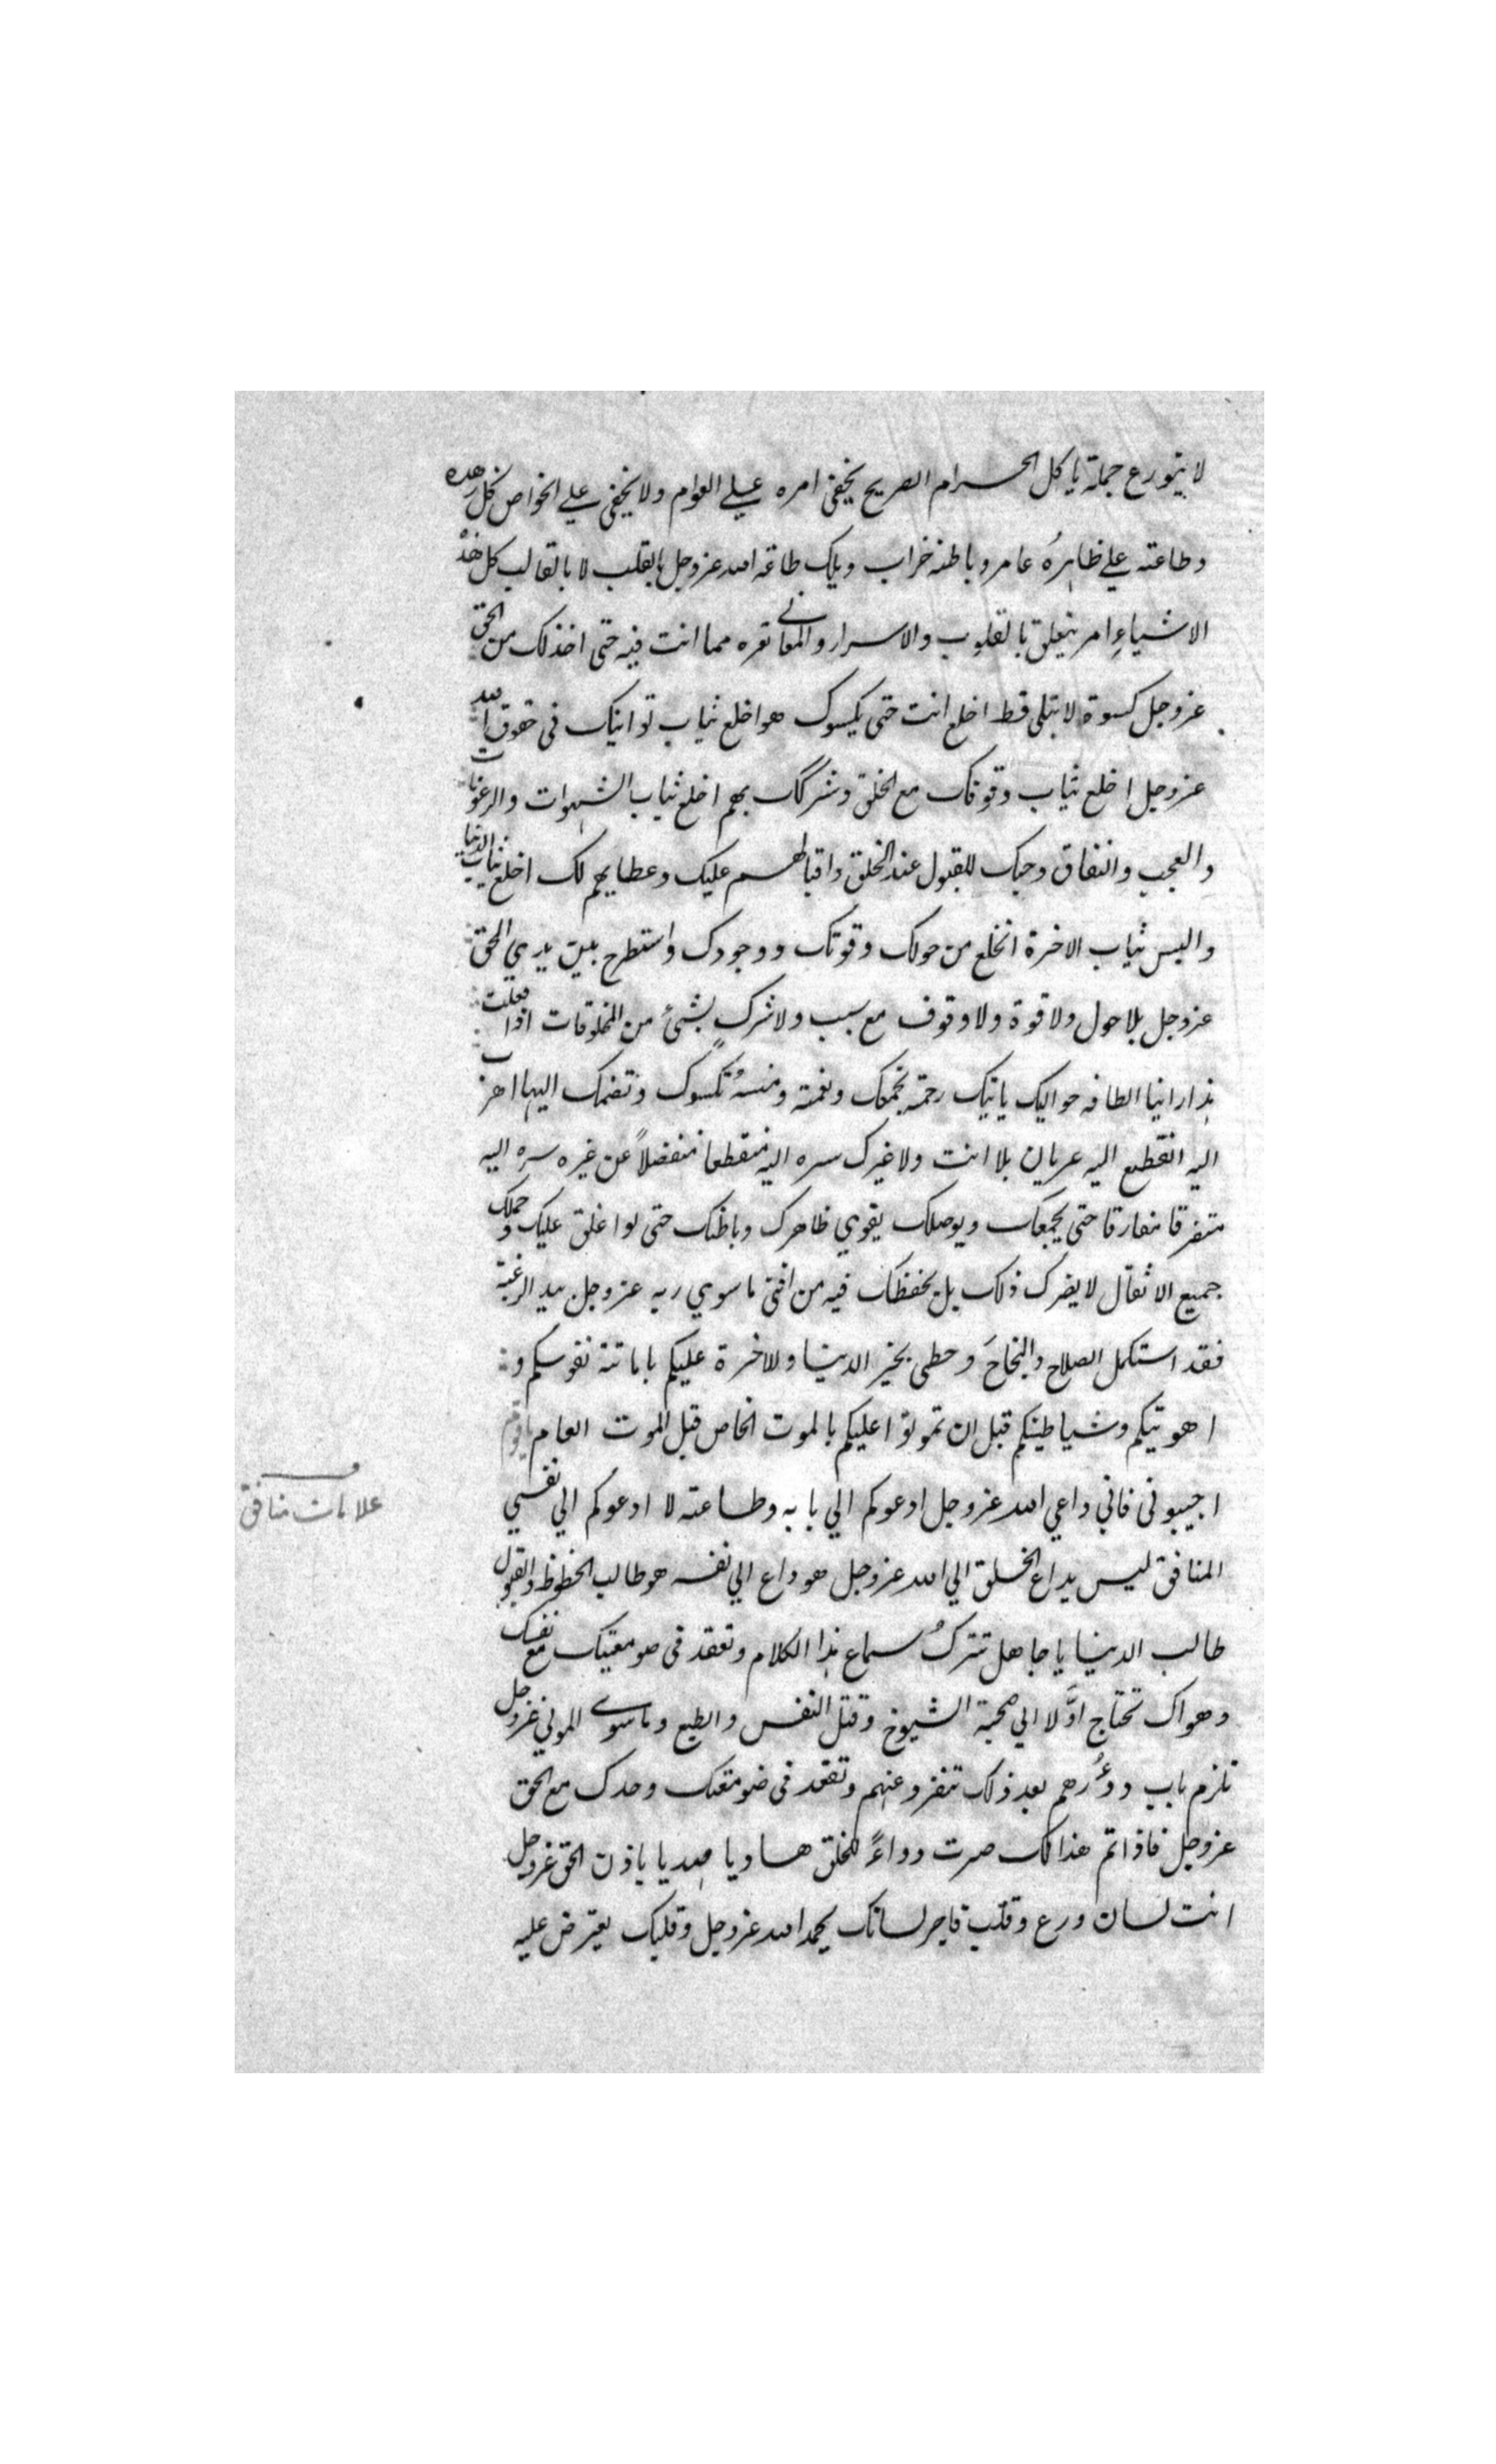 لا يتورع جملة ياكل الحرام الصريح يخفى امره علي العوام ولا يخفى علي الخواص كل زهده
وطاعته علي ظاهرهُ عامر وباطنه خراب ويلك طاعة الله عزوجل بالقلب لا بالقالب كل هذه
الاشياءِ امر يتعلق بالقلوب والاسرار والمعاني تعره مما انت فيه حتى اخذ لك من الحق
عزوجل كسوة لا تبلى قط اخلع انت حتى يكسوك هو اخلع ثياب توانيك في حقوق الله
عزوجل اخلع ثياب وقوفك مع الخلق وشركك بهم اخلع ثياب الشهوات والرعونات
والعجب والنفاق وحبك للقبول عند الخلق واقبالهم عليك وعطايهم لك اخلع ثياب الدنيا
والبس ثياب الاخرة انخلع من حولك وقوتك ووجودك واستطرح بين يدي الحق
عزوجل بلا حول ولا قوة ولا وقوف مع سبب ولا شركٍ بشئ من المخلوقات اذا فعلت
هذا رايتا الطافه حواليك ياتيك رحمة تجمعك ونعمته ومنسهُ تكسوك وتضمك اليها اهرب
اليه انقطع اليه عريان بلا انت ولا غيرك سره اليه منقطعا منفصلاً عن غيره سره اليه
متفرقا مفارقا حتى يجمعك ويوصلك يقوي ظاهرك وباطنك حتى لو اغلق عليك وحملك
جميع الاثقال لا يضرك ذلك بل يحفظك فيه من افنى ما سوي ربه عزوجل بيد الرغبة
فقد استكمل الصلاح والنجاحَ وحظى بخير الدنيا والاخرة عليكم باماتة نفوسكم و
اهويتكم وشياطينكم قبل ان تموتوا عليكم بالموت الخاص قبل الموت العام ياقوم
اجيبوني فاني داعي الله عزوجل ادعوكم الي بابه وطاعته لا ادعوكم الي نفسي
المنافق ليس يداع الخلق الي الله عزوجل هو داع الي نفسه هو طالب الحظوظ والقبول
طالب الدنيا يا جاهل تتركُ سماع هذا الكلام وتقعد في صومعتك مع نفسك
وهواك تحتاج اوّلا الي صحبة الشيوخ وقتل النفس والطبع وما سوي المولي عزوجل
تلزم باب دوُرهم بعد ذلك تنفرد عنهم وتقعد في صومعتك وحدك مع الحق
عزوجل فاذا تم هذا لك صرت دواءً للخلق هاديا مهديا باذن الحق عزوجل
انت لسان ورع وقلب فاجر لسانك يحمد الله عزوجل وقلبك يعترض عليه
علامات منافق